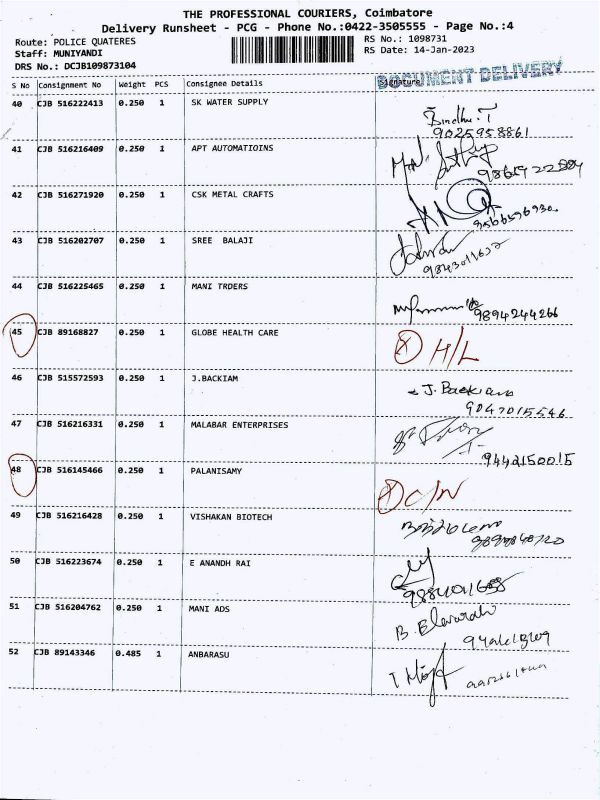 THE PROFESSIONAL COURIERS, Coimbatore
Delivery Runsheet - PCG - Phone No.:0422-3505555 - Page No.:4
Route: POLICE QUATERES RS No.: 1098731
Staff: MUNIYANDI RS Date: 14-Jan-2023
DRS No.: DCJB109873104
DOCUMENT DELIVERY
S No Consignment No Weight PCS Consignee Details Signature
40 CJB 516222413 0.250 1 SK WATER SUPPLY
Bindhu.T
9025958861
41 CJB 516216409 0.250 1 APT AUTOMATIOINS
42 CJB 516271920 0.250 1 CSK METAL CRAFTS
9566596930
43 CJB 516202707 0.250 1 SREE BALAJI
9843011632
44 CJB 516225465 0.250 1 MANI TRDERS
9894244266
45 CJB 89168827 0.250 1 GLOBE HEALTH CARE
X H/L
46 CJB 515572593 0.250 1 J.BACKIAM
J. Backiam
9047015546
47 CJB 516216331 0.250 1 MALABAR ENTERPRISES
9442150015
48 CJB 516145466 0.250 1 PALANISAMY
X C/N
49 CJB 516216428 0.250 1 VISHAKAN BIOTECH
50 CJB 516223674 0.250 1 E ANANDH RAI
51 CJB 516204762 0.250 1 MANI ADS
B.
52 CJB 89143346 0.485 1 ANBARASU